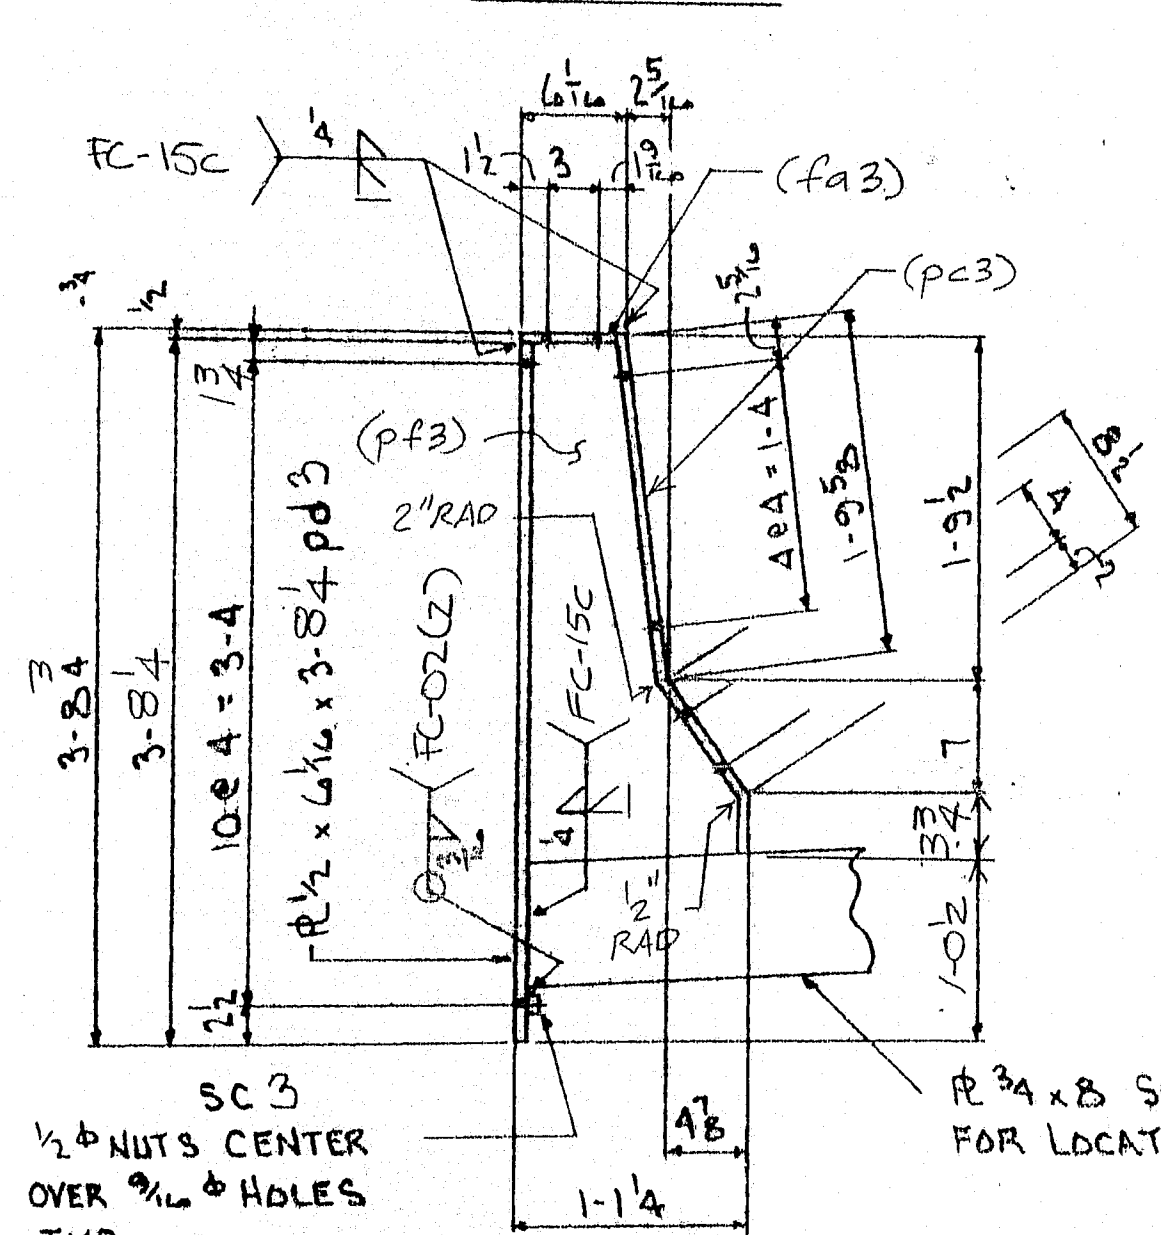 6 1/16
2 5/16
FC-15c
1/4
1 1/2
3
1 9/16
(fa3)
(pc3)
2 5/16
3/4
1/2
1 3/4
(pf3)
2" RAD
4@4 = 1-4
1-9 5/8
1-9 1/2
8 1/2
4
3-8 3/4
3-8 1/4
10@4 = 3-4
PL 1/2 x 6 1/16 x 3-8 1/4 pd3
FC-02(2)
3/16
FC-15c
1/4
7
3 3/4
1/2"
RAD
1-0 1/2
2 1/2
SC3
1/2 Φ NUTS CENTER
OVER 9/16 Φ HOLES
4 7/8
1-1 1/4
PL 3/4 x 8 S
FOR LOCAT